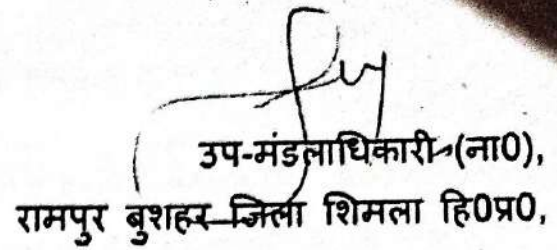 उप-मंडलाधिकारी (ना0),
रामपुर बुशहर जिला शिमला हि0प्र0,